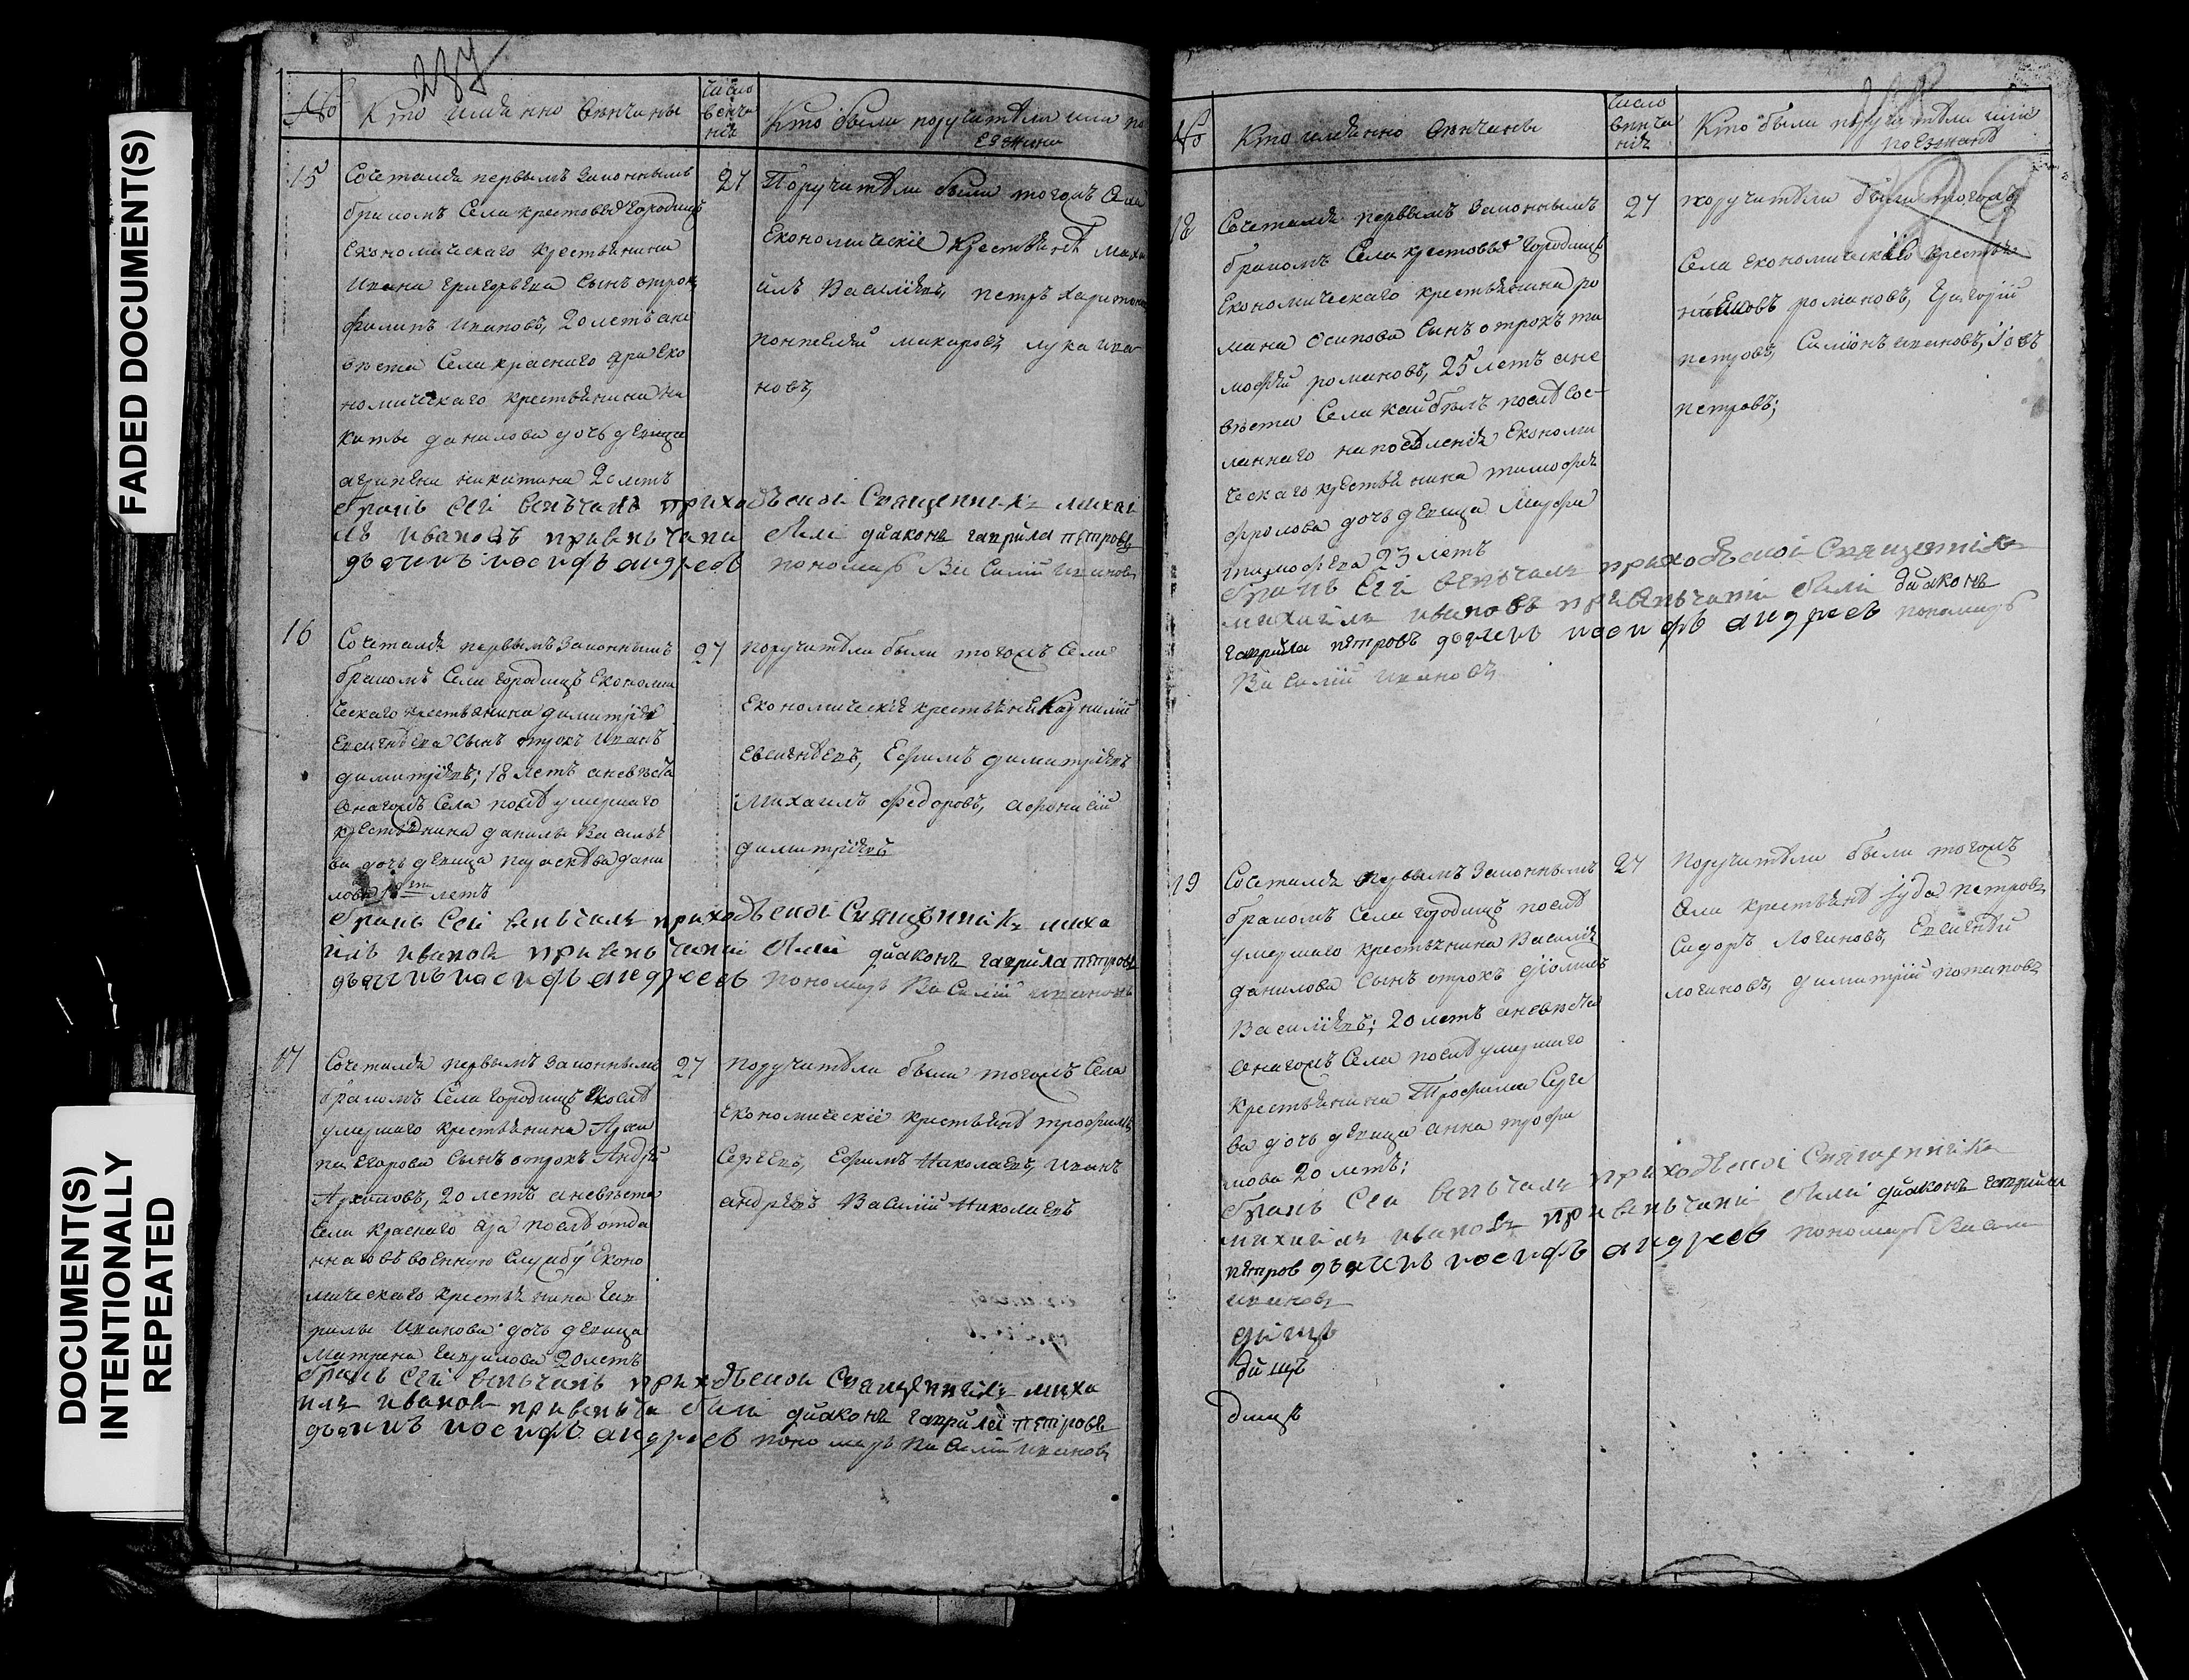 FADED DOCUMENT(S)
DOCUMENT(S)
INTENTIONALLY
REPEATED
237
№
Кто имянно венчаны
Число
венча
нія
Кто были поручители или по
езжаны
15
Сочетался первымъ законнымъ
бракомъ Села крестовыхъ Городищъ
Економическаго крестьянина
Ивана Григорьева сынъ отрокъ
Филипъ Ивановъ, 20 летъ а не
вѣста Села краснаго яра Еко
номическаго крестьянина Ни
киты данилова дочь девица
агрипена никитина 20 летъ
27
Поручители были тогожъ Села
Економическіе крестьяне Миха
илъ Василіевъ, петръ харитоно
понтелей макаровъ лука ива
новъ,
бракъ сей венъчалъ приходъской Священникъ михаи
лъ ивановъ при венъчани были дїаконъ гаврила петровъ
дьячикъ иосифъ андреев пономарь Василий Ивановъ
16
Сочетался первымъ законнымъ
бракомъ Села городищъ Економи
ческаго крестьянина димитрія
Евсигнѣева сынъ отрокъ Иванъ
димитріевъ; 18 летъ а невѣста
онагожъ Села послѣ умершаго
крестьянина данилы Василье
ва дочь девица параскева дани
лова летъ
27
поручители были тогожъ Села
Економическія крестьяне Корнилий
Евсигнѣевъ, Ефимъ димитріевъ
Михаилъ Федоровъ, афонасий
димитріевъ
бракъ сей венъчалъ приходъской Священникъ миха
илъ иванов при венъчании были дїаконъ гаврила петровъ
дьячикъ иосифъ андреев пономарь Василий ивановъ
17
Сочетался первымъ законнымъ
бракомъ Села городищъ послѣ
умершаго крестьянина Архи
па Егорова сынъ отрокъ Андрей
Архиповъ, 20 летъ а невѣста
Села краснаго яра послѣ отда
ннаго въ военную службу Еконо
мическаго крестьянина Гав
рилы Иванова дочь девица
Матрена Гаврилова 20 летъ
27
поручители были тогожъ Села
Економическіе крестьяне трофимъ
Сергеевъ, Ефимъ Николаевъ, Иванъ
андреевъ Василий Николаевъ
бракъ сей венъчалъ приходъской Священникъ миха
илъ иванов при венъча были дїаконъ гаврила петровъ
дьячикъ иосифъ андреев пономарь Василий Ивановъ
№
Кто имянно венчаны
Число
венча
нія
Кто были поручители или
поезжане
18
Сочетался первымъ законнымъ
бракомъ Села крестовыхъ городищъ
Економическаго крестьянина ро
мана осипова сынъ отрокъ ти
мофей романовъ, 25 летъ а не
вѣста Села послѣ сос-
ланнаго на поселеніе Економи
ческаго крестьянина тимофея
фролова дочь девица Марфа
тимофеева 23 летъ
27
поручители были тогожъ
Села економическаго крестья
романовъ, Григорий
петровъ, Симіонъ ивановъ, Іовъ
петровъ;
бракъ сей венъчалъ приходъской Священникъ
михаилъ ивановъ при венъчании были дїаконъ
гаврила петровъ дьячикъ иосифъ андреев пономарь
Василий ивановъ
19
Сочетался первымъ законнымъ
бракомъ Села городищъ послѣ
умершаго крестьянина Василія
данилова сынъ отрокъ
Василіевъ; 20 летъ а невѣста
онагожъ Села послѣ умершаго
крестьянина Трофима Серге
ва дочь девица анна трофи
мова 20 летъ;
27
Поручители были тогожъ
Села крестьяне Іуда петровъ
Сидоръ Логиновъ, Евсигней
логиновъ, димитрий потаповъ
бракъ сей венъчалъ приходъской Священникъ
михаилъ ивановъ при венъчании были дїаконъ гаврила
петров дьячикъ иосифъ андреев пономарь Васили
ивановъ